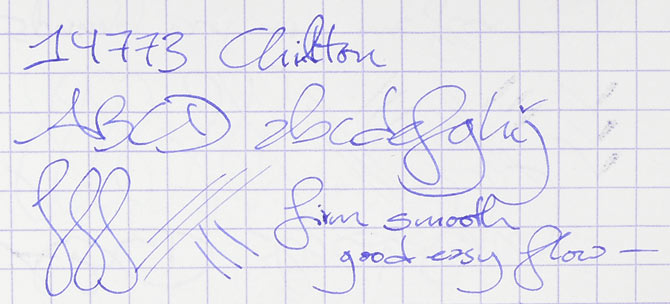 14773 Chilton
ABCD abcdefghij
firm smooth
good easy flow —